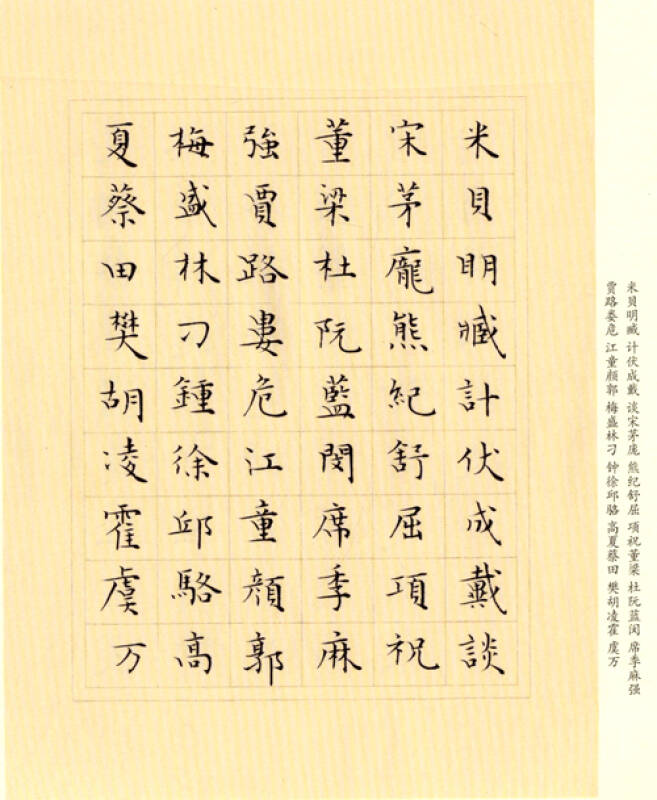 米貝明臧計伏成戴談
宋茅龐熊紀舒屈項祝
董梁杜阮藍閔席季麻
強賈路婁危江童顏郭
梅盛林刁鍾徐邱駱高
夏蔡田樊胡凌霍虞万
米贝明臧 计伏成戴 谈宋茅庞 熊纪舒屈 项祝董梁 杜阮蓝闵 席季麻强
贾路娄危 江童颜郭 梅盛林刁 钟徐邱骆 高夏蔡田 樊胡凌霍 虞万